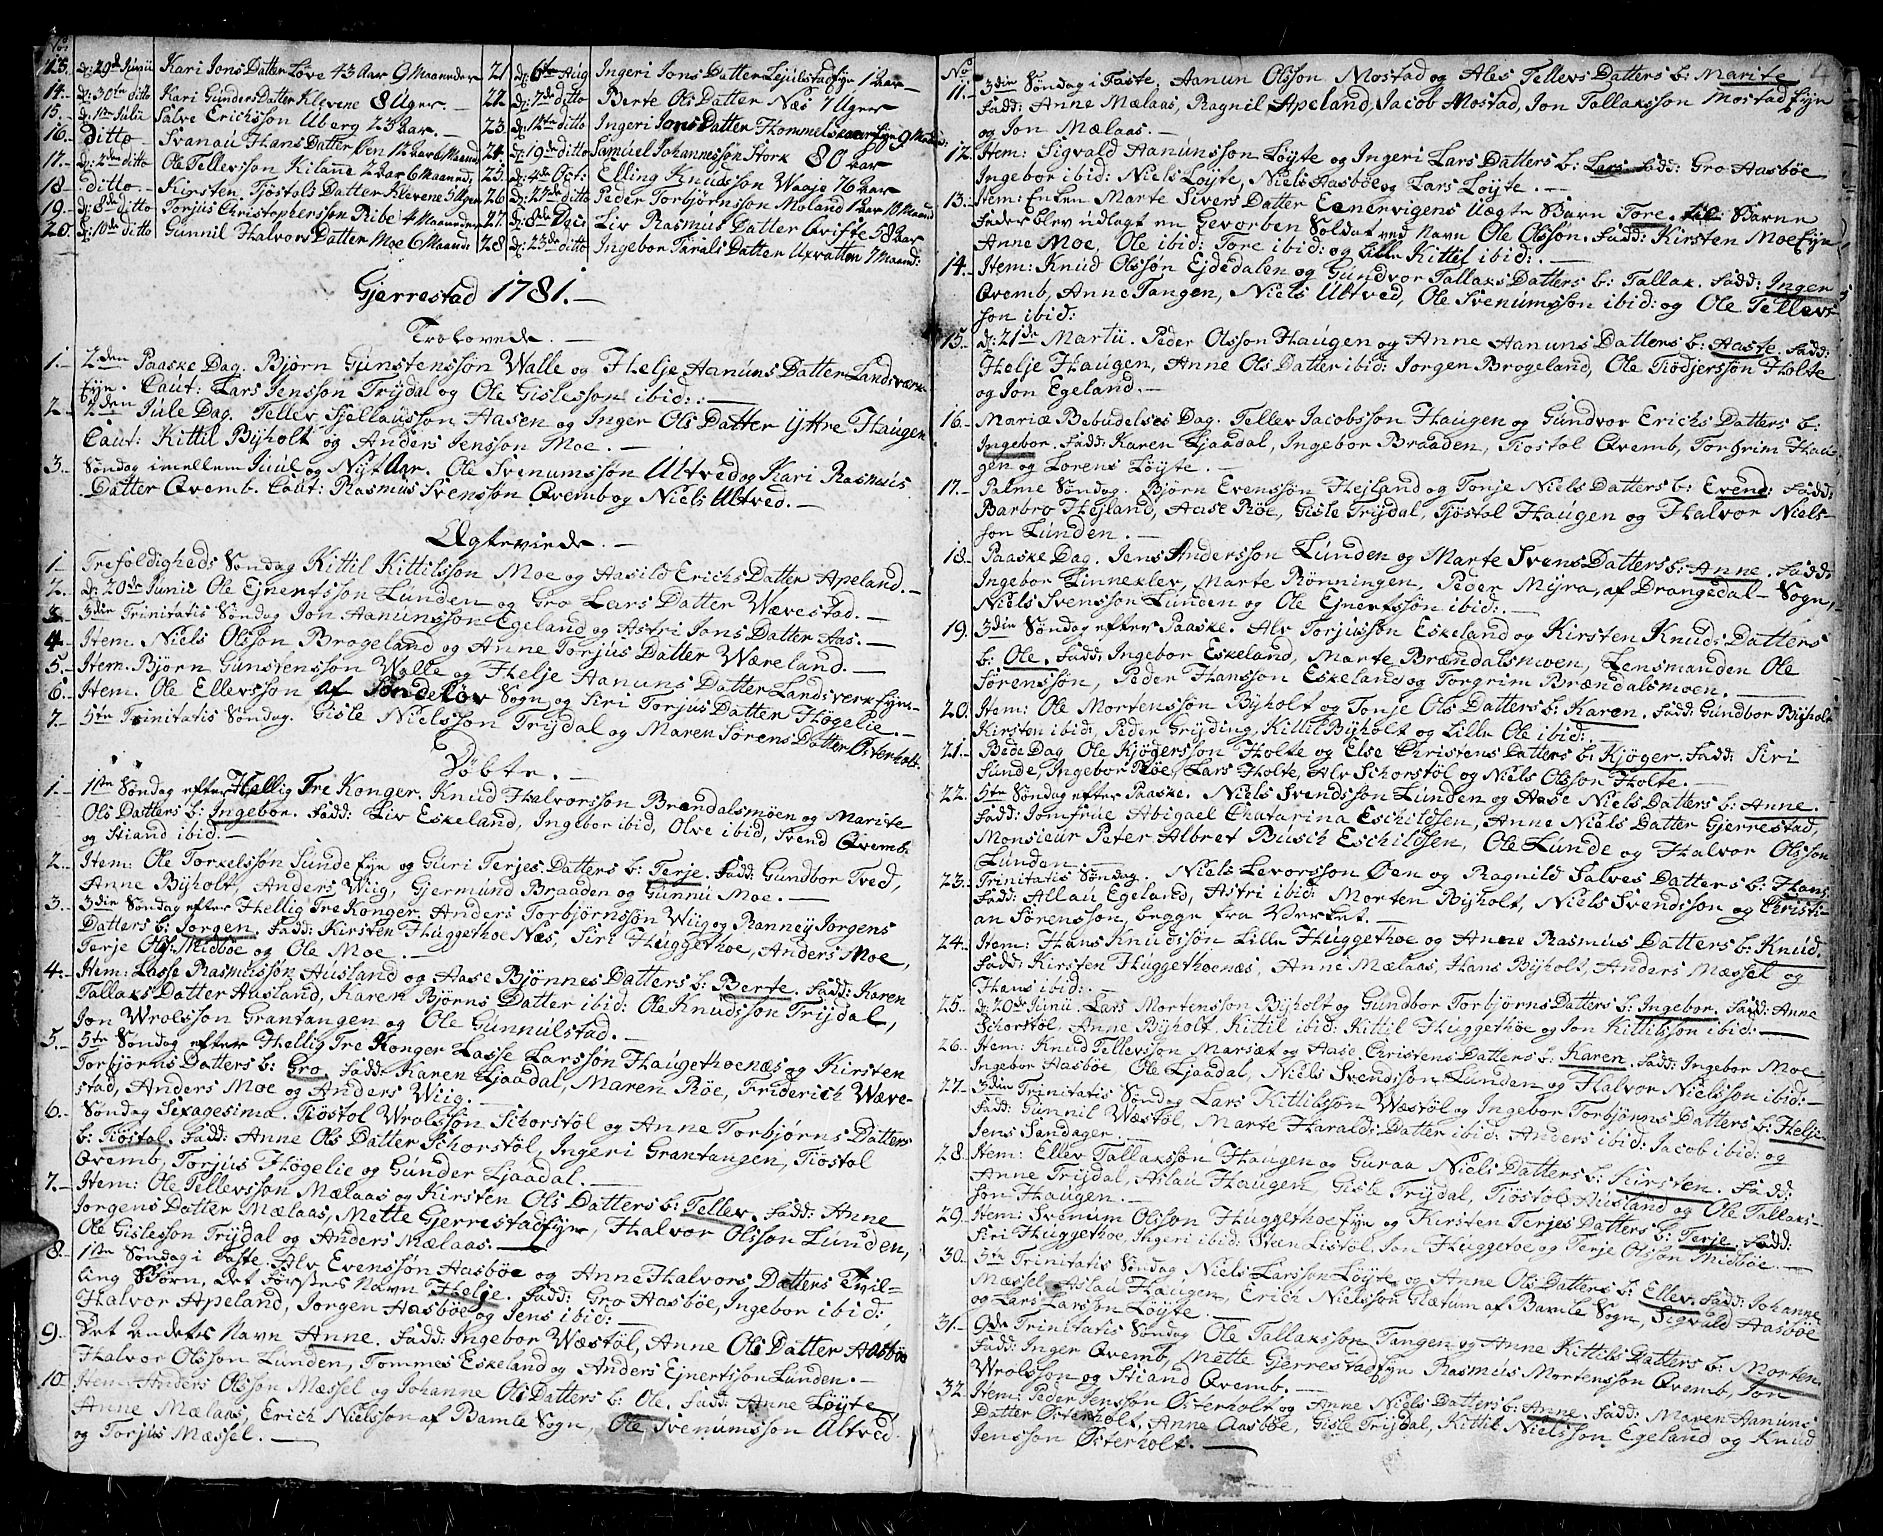 13. d: 29de Junii Kari Jons Datter Løve 43 Aar 9 Maaneder
14. d: 30te ditto Kari Gunders Datter Klevene 8 Uger. —
15. d: 1ste Julii Salve Erichsson Uberg 23 Aar. —
16. ditto Svanau Hans Datter Øen 12 Aar 6 Maaned
17. d: 2den ditto Ole Tellevsson Kilane 2 Aar 6 Maaned:
18. ditto Kirsten Tiøstols Datter Klevene 5 Uger
19. d: 8de ditto Torjus Christophersson Ribe 4 Maaneder
20. d: 10de ditto Gunnil Halvors Datter Moe 6 Maaned:
21. d: 6te Aug Ingeri Jons Datter Lejulstad Eje 1 Aar
22. d: 7de ditto Berte Ols Datter Næs 7 Uger
23. d: 12te ditto Ingeri Jons Datter Hommelsmoe Eje 9 Maan:
24. d: 19de ditto Samuel Johannesson Stork 80 Aar
25. d: 4de Oct: Elling Knudsson Waaje 76 Aar
26. d: 22de ditto Peder Torbjørnsson Moland 1 Aar 10 Maaned
27. d: 8de Dec: Liv Rasmus Datter Qviste 58 Aar
28. d: 23de ditto Ingebor Tarals Datter Uxvatten 7 Maaned:
Gjerrestad 1781. —
Trolovede. —
1. 2den Paaske Dag. Bjørn Gunstensson Walle og Helje Aanuns Datter Landsværk
Eje. Caut: Lars Jensson Trydal og Ole Gislesson ibid: —
2. 2den Jule Dag. Tellev Sjellausson Aasen og Inger Ols Datter Yttre Haugen
Caut: Kittil Byholt og Anders Jensson Moe. —
3. Søndag imellem Juul og Nyt Aar. Ole Svenumsson Ultved og Kari Rasmus
Datter Qvemb. Caut: Rasmus Svensson Qvemb og Niels Ultved. —
Ægteviede. —
1. Trefoldigheds Søndag Kittil Kittilsson Moe og Aasild Erichs Datter Apeland. —
2. d: 20de Junii Ole Ejnertsson Lunden og Gro Lars Datter Wævestad. —
3. 3die Trinitatis Søndag Jon Aanunsson Egeland og Astri Jons Datter Aas. —
4. Item. Niels Olsson Brogeland og Anne Torjus Datter Wæreland. —
5. Item. Bjørn Gunstensson Walle og Helje Aanuns Datter Landsverk Eje. —
6. Item. Ole Ellevsson af Søndeløv Sogn og Siri Torjus Datter Høgelie. —
7. 5te Trinitatis Søndag. Gisle Nielsson Trydal og Maren Sørens Datter Østerholt.
Døbte. —
1. 1ste Søndag efter Hellig Tre Konger. Knud Halvorsson Brændalsmoen og Marite
Ols Datters b: Ingebor. Fadd: Liv Eskeland, Ingebor ibid, Olve ibid, Svend Qvemb
og Stiand ibid: —
2. Item: Ole Torkelsson Sunde Eje og Guri Terjes Datters b: Terje. Fadd: Gundbor Tved,
Anne Byholt, Anders Wiig, Gjermund Braaden og Gunnu Moe. —
3. 3die Søndag efter Hellig Tre Konger. Anders Torbjørnsson Wiig og Ranney Jorgens
Datters b: Jorgen. Fadd: Kirsten Huggethoe Næs, Siri Huggethoe, Anders Moe,
Terje Ols: Midbøe og Ole Moe. —
4. Item: Lasse Rasmusson Ausland og Aase Bjønnes Datters b: Berte. Fadd: Karen
Tallaks Datter Ausland, Karen Bjørns Datter ibid: Ole Knudsson Trydal,
Jon Wrolsson Grantangen og Ole Gunnulstad. —
5. 5te Søndag efter Hellig Tre Konger Lasse Larsson Haugethoenæs og Kirsten
Torbjørns Datters b: Gro. Fadd: Karen Ljaadal, Maren Røe, Friderich Wæve-
stad, Anders Moe og Anders Wiig. —
6. Søndag Sexagesima. Tiøstol Wrolsson Schorstøl og Anne Torbjørns Datters
b: Tiøstol. Fadd: Anne Ols Datter Schorstøl, Ingeri Grantangen, Tiøstol
Qvemb, Torjus Høgelie og Gunder Ljaadal. —
7. Item: Ole Tellevsson Mælaas og Kirsten Ols Datters b: Tellev. Fadd: Anne
Jorgens Datter Mælaas, Mette Gjerrestad Eje, Halvor Olsson Lunden,
Ole Gislesson Trydal og Anders Mælaas. —
8. 1ste Søndag i Faste, Alv Evensson Aasbøe og Anne Halvors Datters Tvil-
ling Børn, Det Førstes Navn Helje. Fadd: Gro Aasbøe, Ingebor ibid:
Halvor Apeland, Jorgen Aasbøe og Jens ibid: —
9. Det andets Navn Anne. Fadd: Ingebor Wæstøl, Anne Ols Datter Aasbøe
Halvor Olsson Lunden, Tommes Eskeland og Anders Ejnertsson Lunden. —
10. Item. Anders Olsson Mæssel og Johanne Ols Datters b: Ole. Fadd: Anne Løyte
Anne Mælaas, Erich Nielsson af Bamle Sogn, Ole Svenumsson Ultved
og Torjus Mæssel. —
No
11. 3die Søndag i Faste, Aanun Olsson Mostad og Ales Tellevs Datters b: Marite
Fadd: Anne Mælaas, Ragnil Apeland, Jacob Mostad, Jon Tallaksson Mostad Eje
og Jon Mælaas. —
12. Item: Sigvald Aanunsson Løyte og Ingeri Lars Datters b: Lars. Fadd: Gro Aasbøe
Ingebor ibid: Niels Løyte, Niels Aasbøe og Lars Løyte. —
13. Item: Enken Marte Sivers Datter Eenervigens Uægte Barn Tore. til Barne
Fader blev udlagt en Gevorben Soldat ved Navn Ole Olsson. Fadd: Kirsten Moe Eje
Anne Moe, Ole ibid: Tore ibid: og Lille Kittil ibid: —
14. Item: Knud Olsson Ejdedalen og Gundvor Tallaks Datters b: Tallak. Fadd: Inger
Qvemb, Anne Tangen, Niels Ultved, Ole Svenumsson ibid: og Ole Tellevs-
son ibid:
15. d: 21de Martii. Peder Olsson Haugen og Anne Aanuns Datters b: Aaste. Fadd:
Helje Haugen, Anne Ols Datter ibid: Jorgen Brogeland, Ole Tiødjersson Holte
og Jon Egeland. —
16. Mariæ Bebudelses Dag. Tellev Jacobsson Haugen og Gundvor Erichs Datters b:
Ingebor. Fadd: Karen Ljaadal, Ingebor Braaden, Tiøstol Qvemb, Torgrim Hau-
gen og Lorens Løyte. —
17. Palme Søndag. Bjørn Evensson Hejland og Tonje Niels Datters b: Evend: Fadd:
Barbro Hejland, Aase Røe, Gisle Trydal, Tjøstol Haugen og Halvor Niels-
son Lunden. —
18. Paaske Dag. Jens Andersson Lunden og Marte Svens Datters b: Anne. Fadd:
Ingebor Linneklev, Marte Rønningen, Peder Myra, af Drangedal Sogn,
Niels Svensson Lunden og Ole Ejnertsson ibid: —
19. 3die Søndag efter Paaske. Alv Torjusson Eskeland og Kirsten Knud: Datters
b: Ole. Fadd: Ingebor Eskeland, Marte Brændalsmoen, Lensmanden Ole
Sørensson, Peder Hansson Eskeland og Torgrim Brændalsmoen. —
20. Item: Ole Mortensson Byholt og Tonje Ols Datters b: Karen. Fadd: Gundbor Byholt
Kirsten ibid: Peder Gryding, Kittil Byholt og Lille Ole ibid: —
21. Bede Dag. Ole Kjøgersson Holte og Else Christens Datters b: Kjøger. Fadd: Siri
Sunde, Ingebor Røe, Lars Holte, Alv Schorstøl og Niels Olsson Holte —
22. 5te Søndag efter Paaske. Niels Svendsson Lunden og Aase Niels Datters b: Anne.
Fadd: Jomfrue Abigael Chatarina Eschildsen, Anne Niels Datter Gjerrestad,
Monsieur Peter Albret Busch Eschildsen, Ole Lunde og Halvor Olsson
Lunden. —
23. Trinitatis Søndag. Niels Levorsson Øen og Ragnild Salves Datters b: Hans
Fadd: Allau Egeland, Astri ibid: Morten Byholt, Niels Svendsson og Christi-
an Sørensson, begge fra Verket. —
24. Item: Hans Knudsson Lille Huggethoe og Anne Rasmus Datters b: Knud.
Fadd: Kirsten Huggethoenæs, Anne Mælaas, Hans Byholt, Anders Mæssel og
Hans ibid: —
25. d: 20de Junii. Lars Mortensson Byholt og Gundbor Torbjørns Datters b: Ingebor. Fadd: Anne
Schorstøl, Anne Byholt, Kittil ibid: Kittil Huggethoe og Jon Kittilsson ibid: —
26. Item: Knud Tellevsson Marsæt og Aase Christens Datters b: Karen. Fadd: Ingebor Moe
Ingebor Aasbøe Ole Ljaadal, Niels Svendsson Lunden og Halvor Nielsson ibid: —
27. 3die Trinitatis Søndag Lars Kittilsson Wæstøl og Ingebor Torbjørns Datters b: Helje
Fadd: Gunnil Wæstøl, Marte Harald: Datter ibid: Anders ibid: Jacob ibid: og
Jens Sandager —
28. Item: Ellev Tallaksson Haugen og Guraa Niels Datters b: Kirsten. Fadd:
Anne Trydal, Aslau Haugen, Gisle Trydal, Tiøstol Ausland og Ole Tallaks-
son Haugen. —
29. Item: Svenum Olsson Huggethoe Eje og Kirsten Terjes Datters b: Terje. Fadd:
Siri Huggethoe, Ingeri ibid: Steen Listøl, Jon Huggetoe og Terje Olsson Midbøe. —
30. 5te Trinitatis Søndag Niels Larsson Løyte og Anne Ols Datters b: Ellev. Fadd: Johanne
Mæssel, Aslau Haugen, Erich Nielsson Glætum af Bamle Sogn, Sigvald Aasbøe
og Lars Larsson Løyte. —
31. 9de Trinitatis Søndag Ole Tallaksson Tangen og Anne Kittils Datters b: Morten.
Fadd: Inger Qvemb, Mette Gjerrestad Eje Rasmus Mortensson Qvemb, Jon
Wrolsson og Stiand Qvemb. —
32. Item: Peder Jensson Østerholt og Anne Niels Datters b: Anne. Fadd: Maren Aanuns
Datter Østerholt, Anne Aasbøe, Gisle Trydal, Kittil Nielsson Egeland og Knud
Jensson Østerholt. —